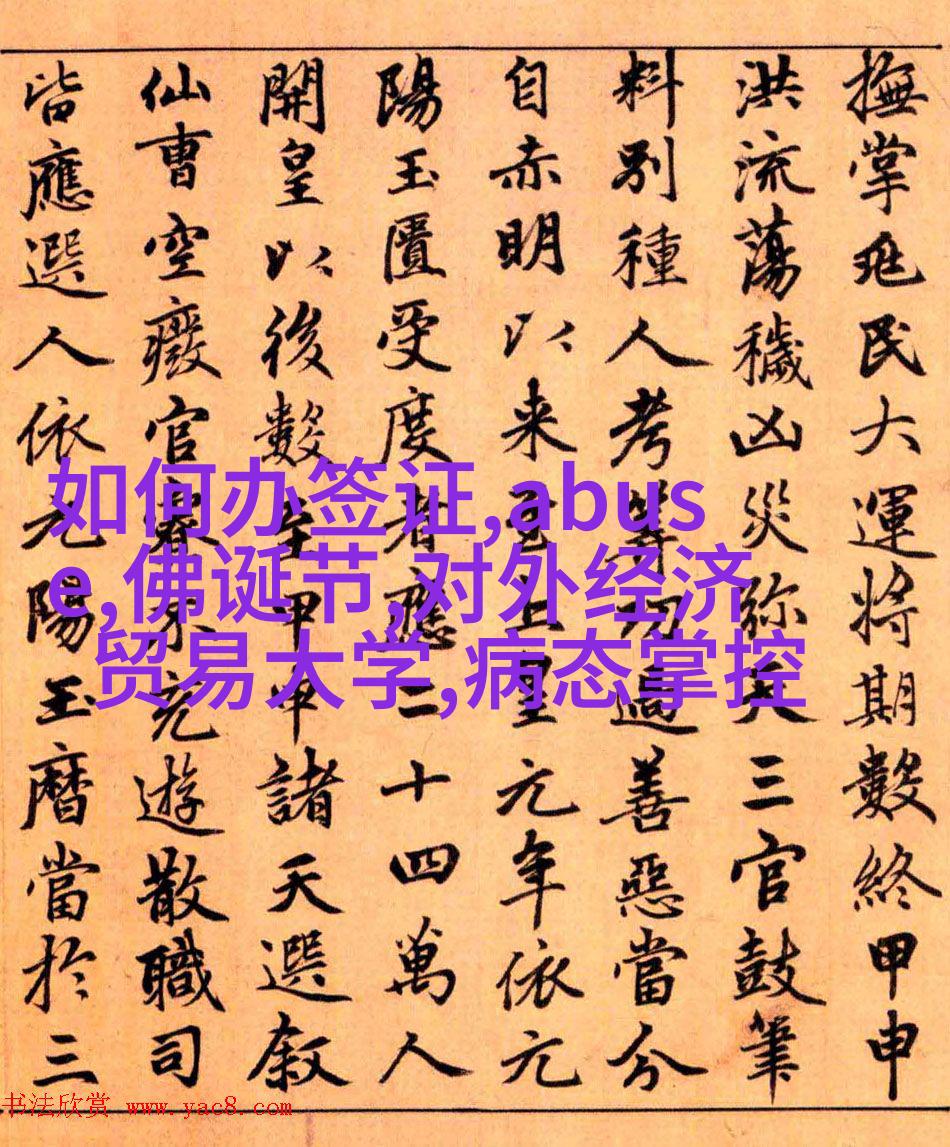 撫掌兆民大運將期數終甲申
洪流蕩穢凶災弥天三官鼓筆
料別種人考筭功過善惡當分
自赤明以来至上皇元年依元
陽玉匱受度者應二十四萬人
開皇以後數至甲申諸天選叙
仙曹空癈官寮不充遊散職司
皆應選人依元陽玉曆當於三
如何办签证,abus
e,佛诞节,对外经济
贸易大学,病态掌控
书法欣赏 www.yac8.com